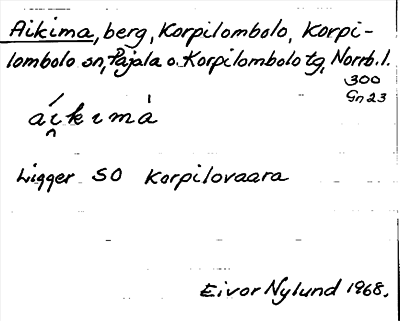 Aikima, berg, Korpilombolo, Korpi-
lombolo sn, Pajala o. Korpilombolo tg, Norrb. l.
300
Gn 23
áı̯kımà
Ligger SO Korpilovaara
Eivor Nylund 1968.